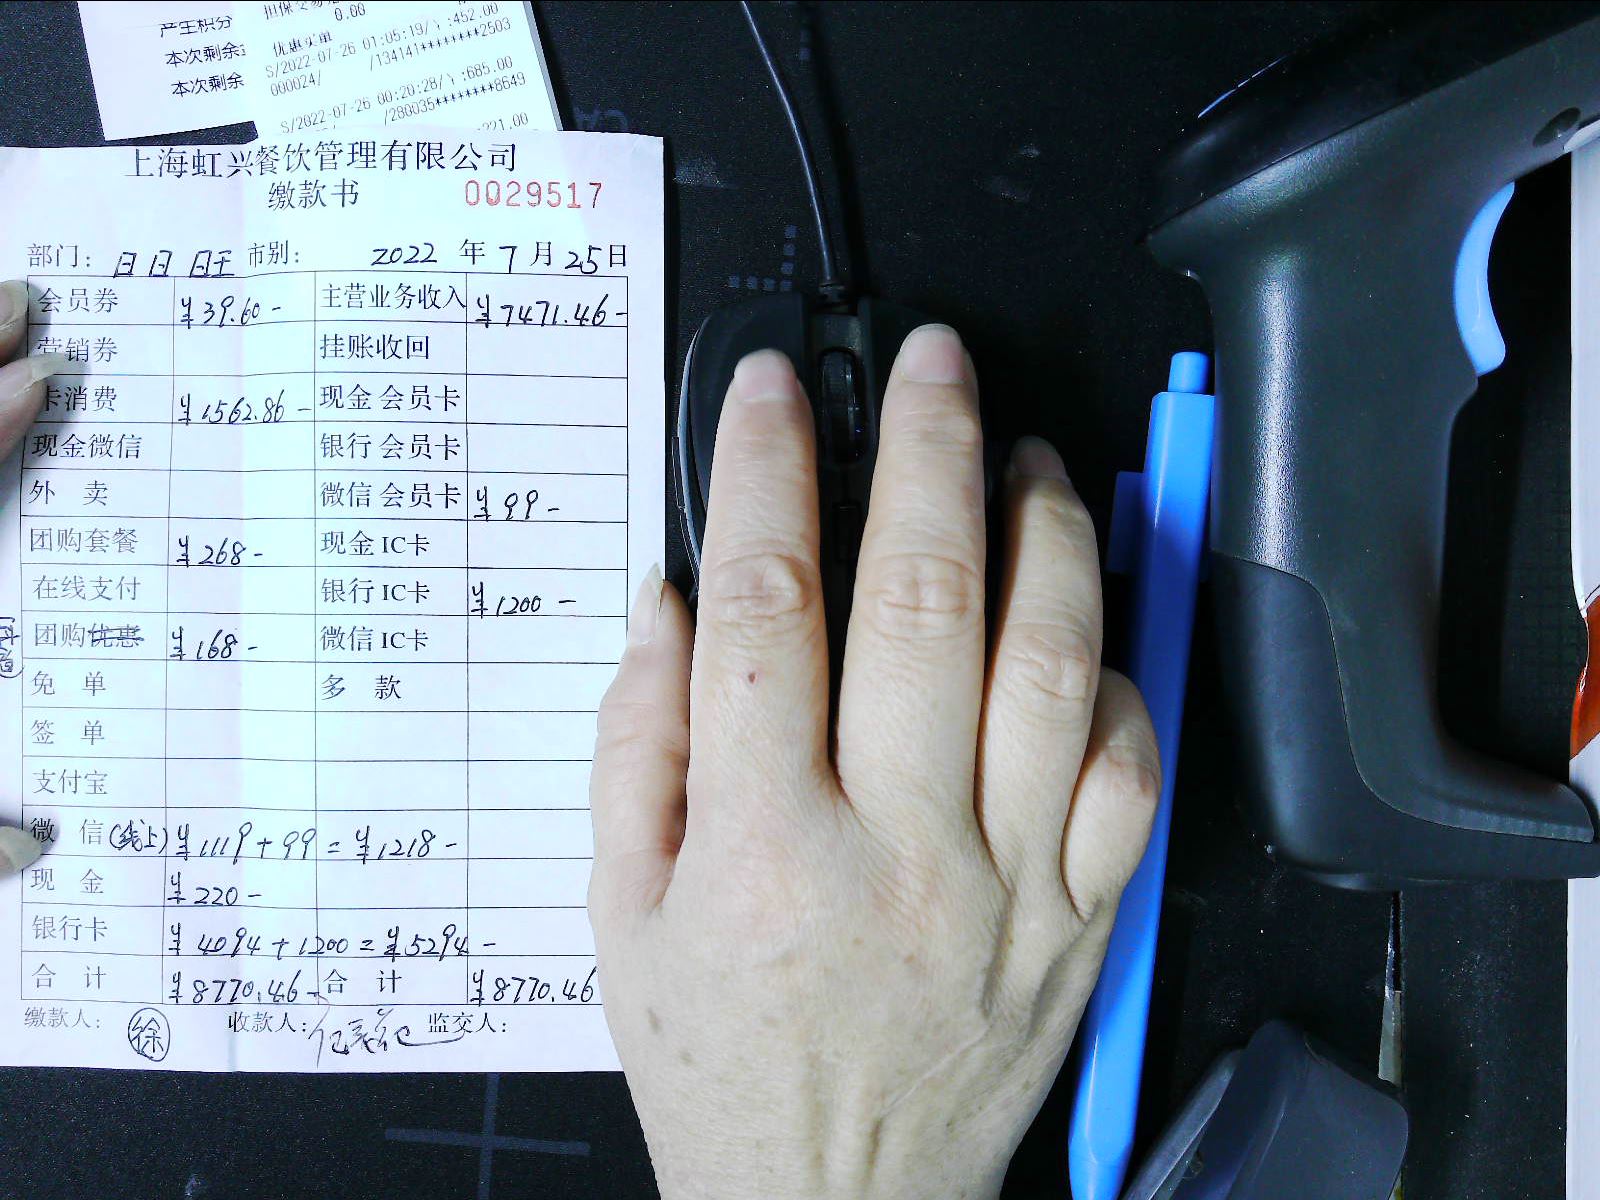 产生积分
本次剩余
本次剩余
担保交易
0.00
优惠买单
S/2022-07-26 01:05:19/\:452.00
000024/ /134141********2503
S/2022-07-26 00:20:28/\:685.00
/280035********8649
221.00
上海虹兴餐饮管理有限公司
缴款书 0029517
部门: 日日 市别: 2022 年 7 月 25 日
会员券 ¥39.60- 主营业务收入 ¥7471.46-
营销券 挂账收回
卡消费 ¥1562.86- 现金 会员卡
现金微信 银行 会员卡
外 卖 微信 会员卡 ¥99-
团购套餐 ¥268- 现金 IC卡
在线支付 银行 IC卡 ¥1200-
团购优惠 ¥168- 微信 IC卡
免 单 多 款
签 单
支付宝
微 信(线上) ¥1119+99=¥1218-
现 金 ¥220-
银行卡 ¥4094+1200=¥5294-
合 计 ¥8770.46- 合 计 ¥8770.46
缴款人: 徐 收款人: 监交人: